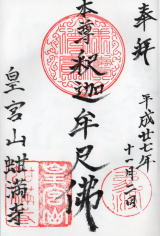 奉拝
平成廿七年
十一月二日
本尊釈迦牟尼佛
皇宮山蚶満寺